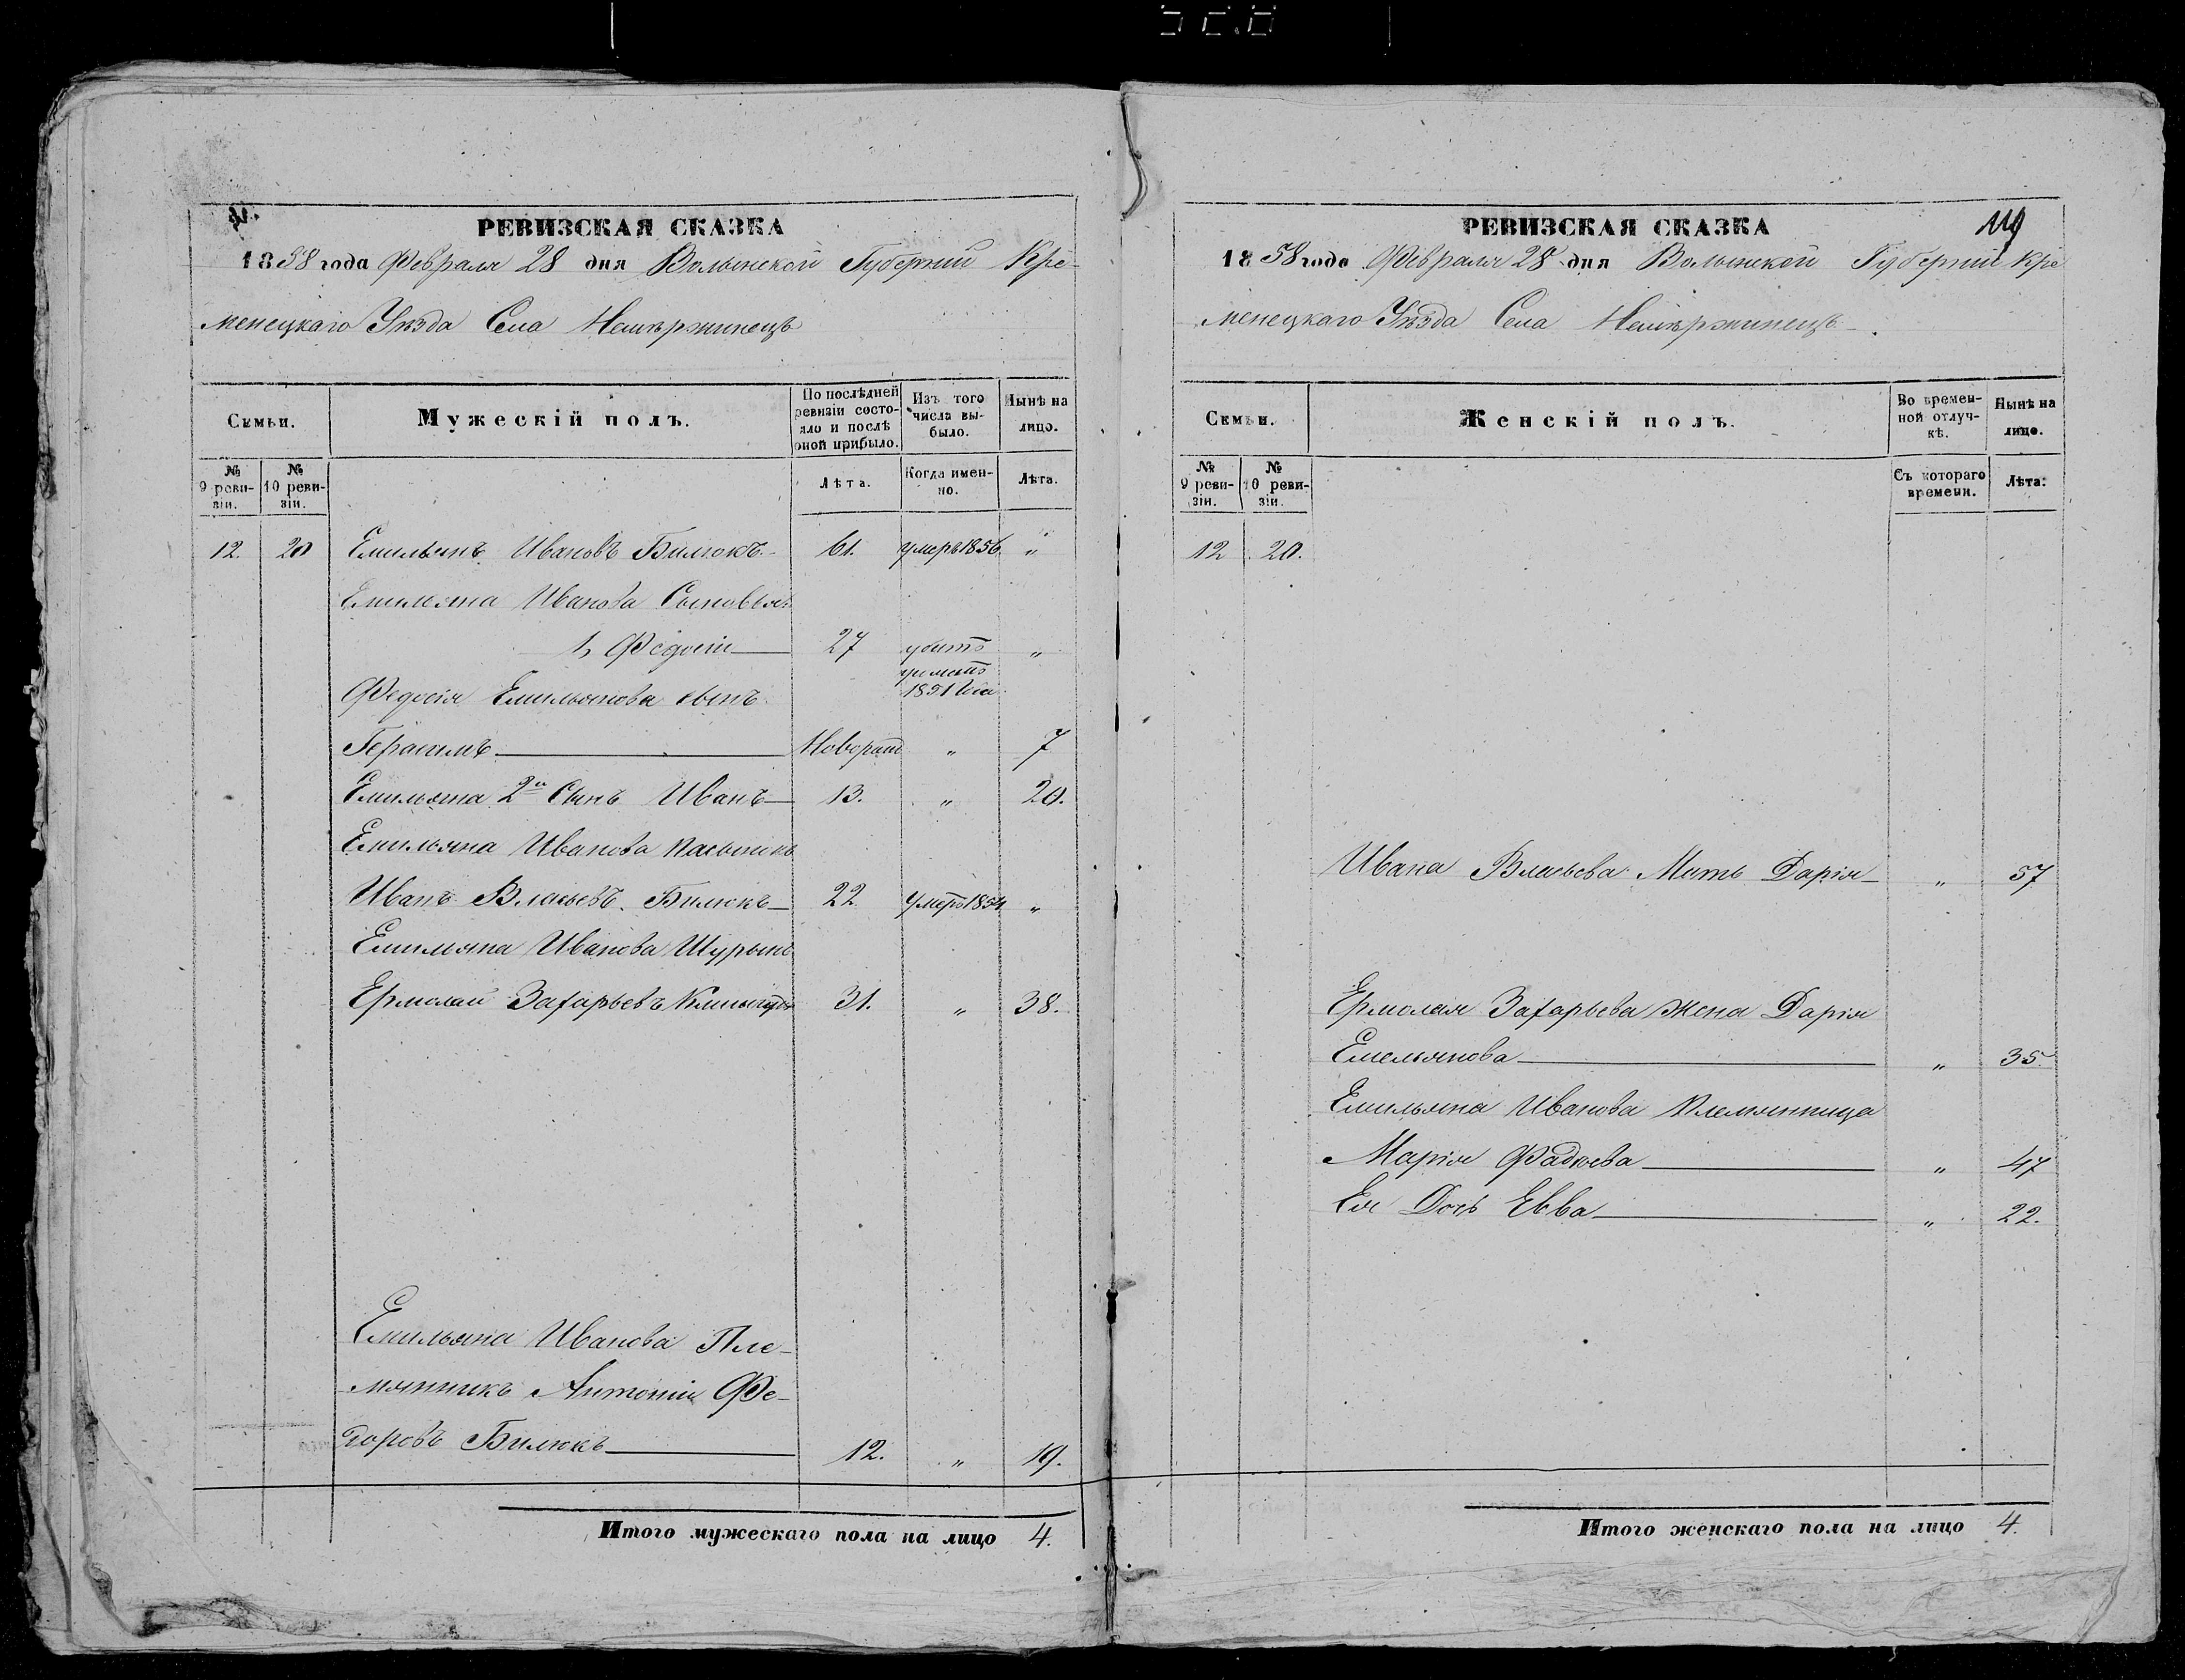 РЕВИЗСКАЯ СКАЗКА
1858 года Февраля 28 дня Волынской Губерніи Кре-
менецкаго Уѣзда Села
Семьи.
Мужескій полъ.
По послѣдней ревизіи состо-яло и послѣ оной прибыло.
Изъ того числа вы-было.
Нынѣ на лицо.
№ 9 реви-зіи.
№ 10 реви-зіи.
Лѣта.
Когда имен-но.
Лѣта.
12. 20 Емильянъ Ивановъ Билюкъ 61. умеръ 1856 „
Емильяна Иванова Сыновья:
1, Федосій 27 убитъ „
1851 года
Федосія Емильянова сынъ
Герасимъ Новорож „ 7
Емильяна 2й Сынъ Иванъ 13. „ 20.
Емильяна Иванова Пасынокъ
Иванъ Власьевъ Билюкъ 22 Умеръ 1854 „
Емильяна Иванова Шурынъ
Ермолай Захарьевъ 31. „ 38.
Емильяна Иванова Пле-
мянникъ Антоній Фе-
доровъ Билюкъ 12. „ 19.
Итого мужескаго пола на лицо 4.
РЕВИЗСКАЯ СКАЗКА 119
1858 года Февраля 28 дня Волынской Губерніи Кре
менецкаго Уѣзда Села
Семьи.
Женскій полъ.
Во времен-ной отлуч-кѣ.
Нынѣ на лицо.
№ 9 реви-зіи.
№ 10 реви-зіи.
Съ котораго времени.
Лѣта.
12 20.
Ивана Власьева Мать Дарія „ 57
Ермолая Захарьева Жена Дарія
Емельянова „ 35
Емильяна Иванова Племянница
Марія Фадѣева „ 47
Ея Дочь Евва „ 22.
Итого женскаго пола на лицо 4.